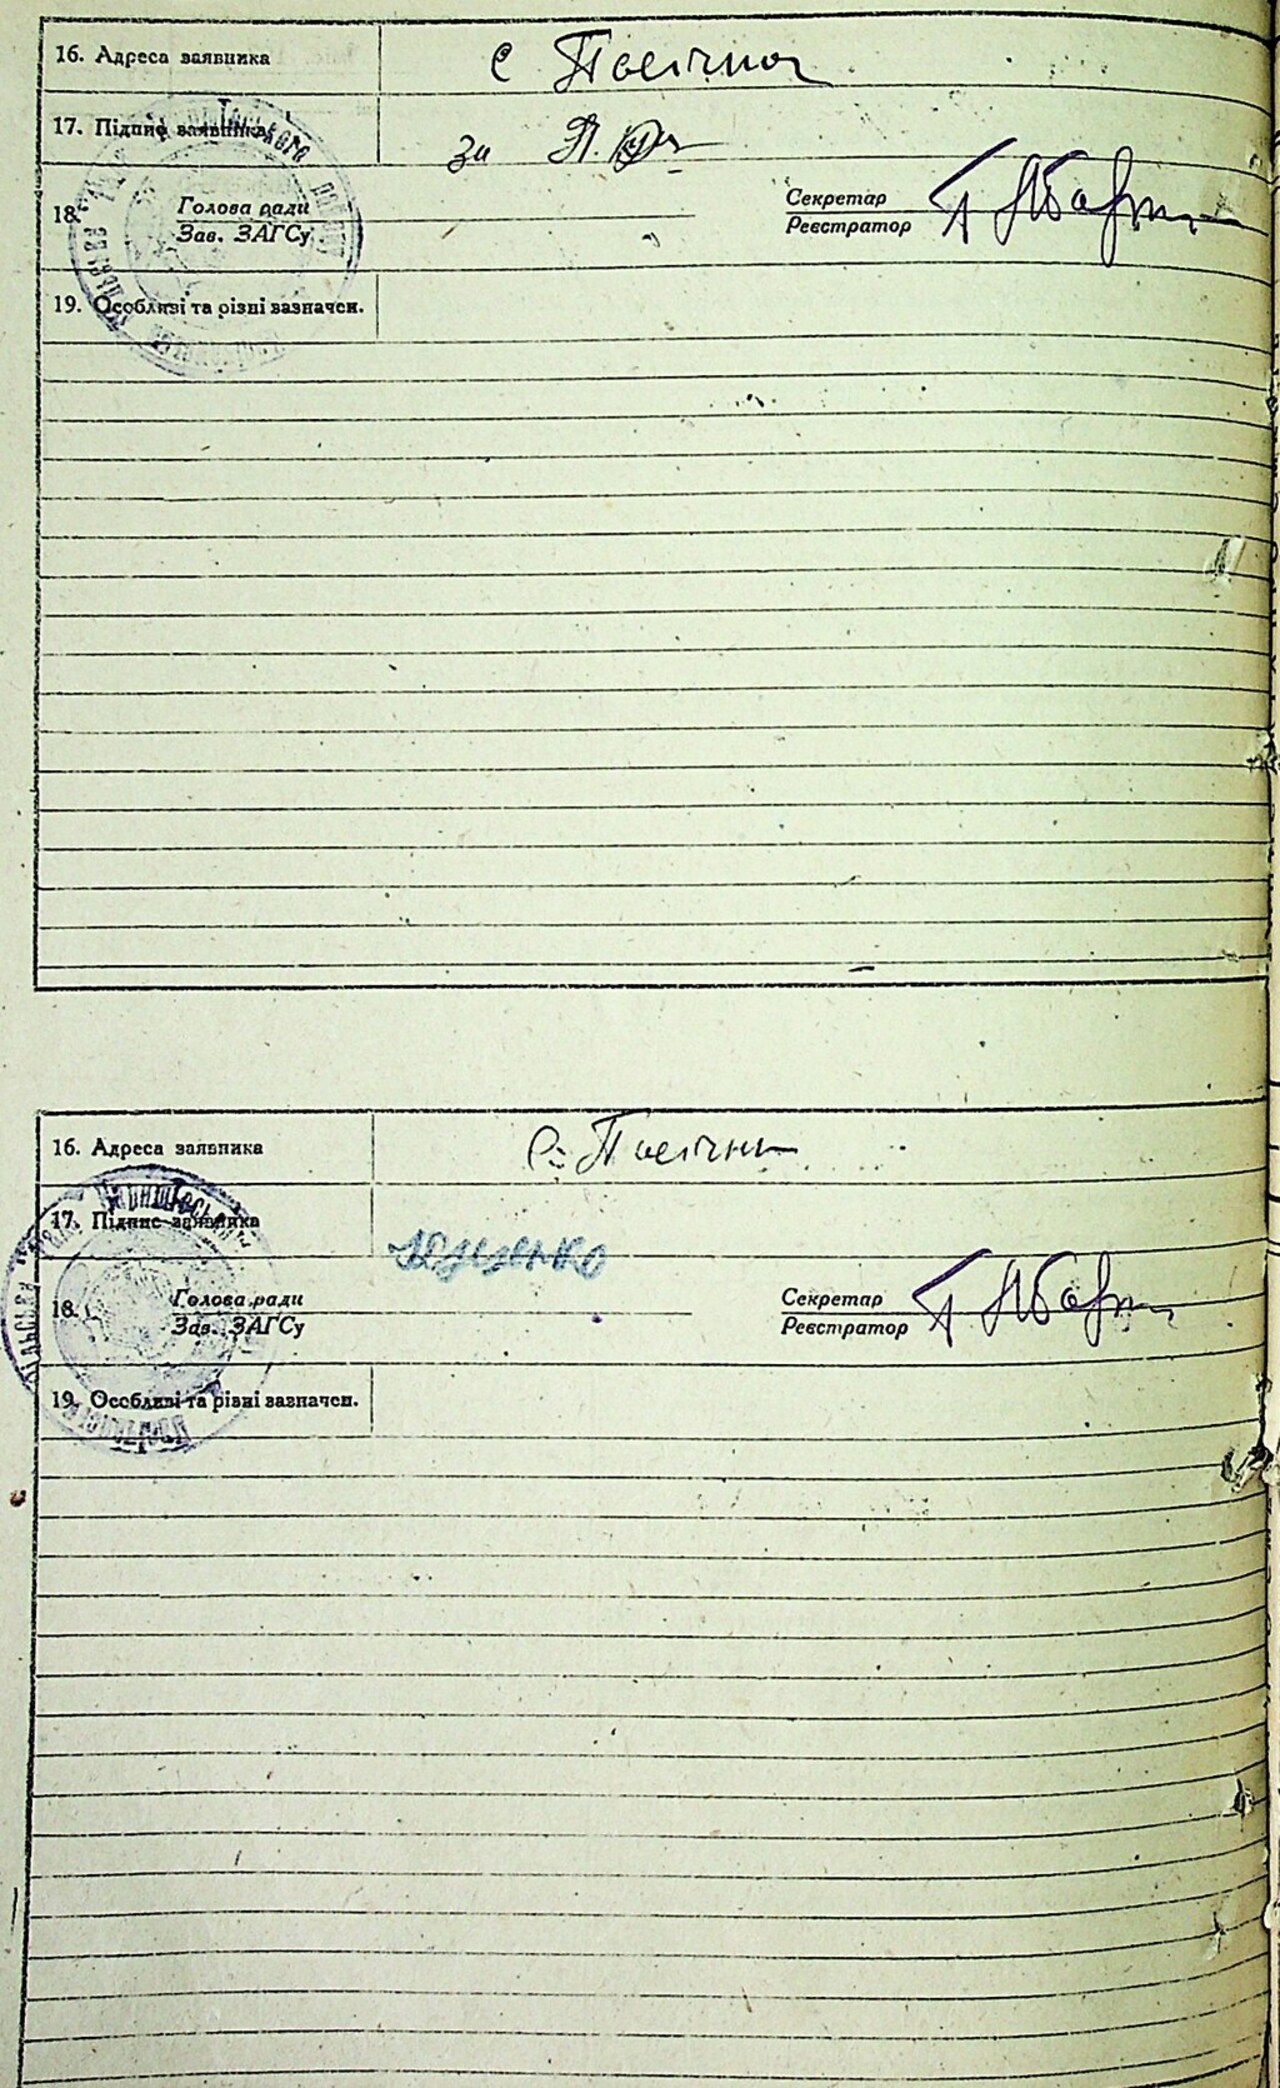 16. Адреса заявника с Пасічна
17. Підпис заявника за П.
18. Голова ради
Зав. ЗАГСу
Секретар
Реєстратор
19. Особливі та різні вазначен.
16. Адреса заявника с. Пасічна
17. Підпис заявника
18. Голова ради
Зав. ЗАГСу
Секретар
Реєстратор
19. Особливі та різні вазначен.